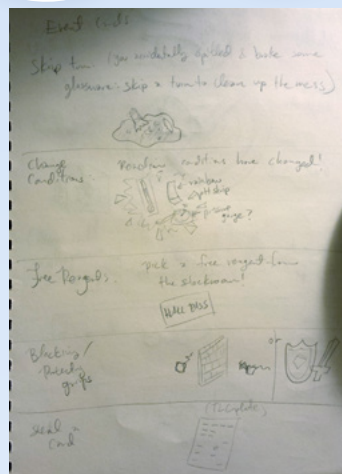 Event Cards
Skip turn (you accidentally spilled & broke some
glassware. skip a turn to clean up the mess)
Change
Conditions:
Reaction conditions have changed!
rainbow
pH strip
gauge?
Free Reagents:
pick a free reagent from
the stockroom!
HALL PASS
Blocking/
Protecting
groups
or
Steal a
Card